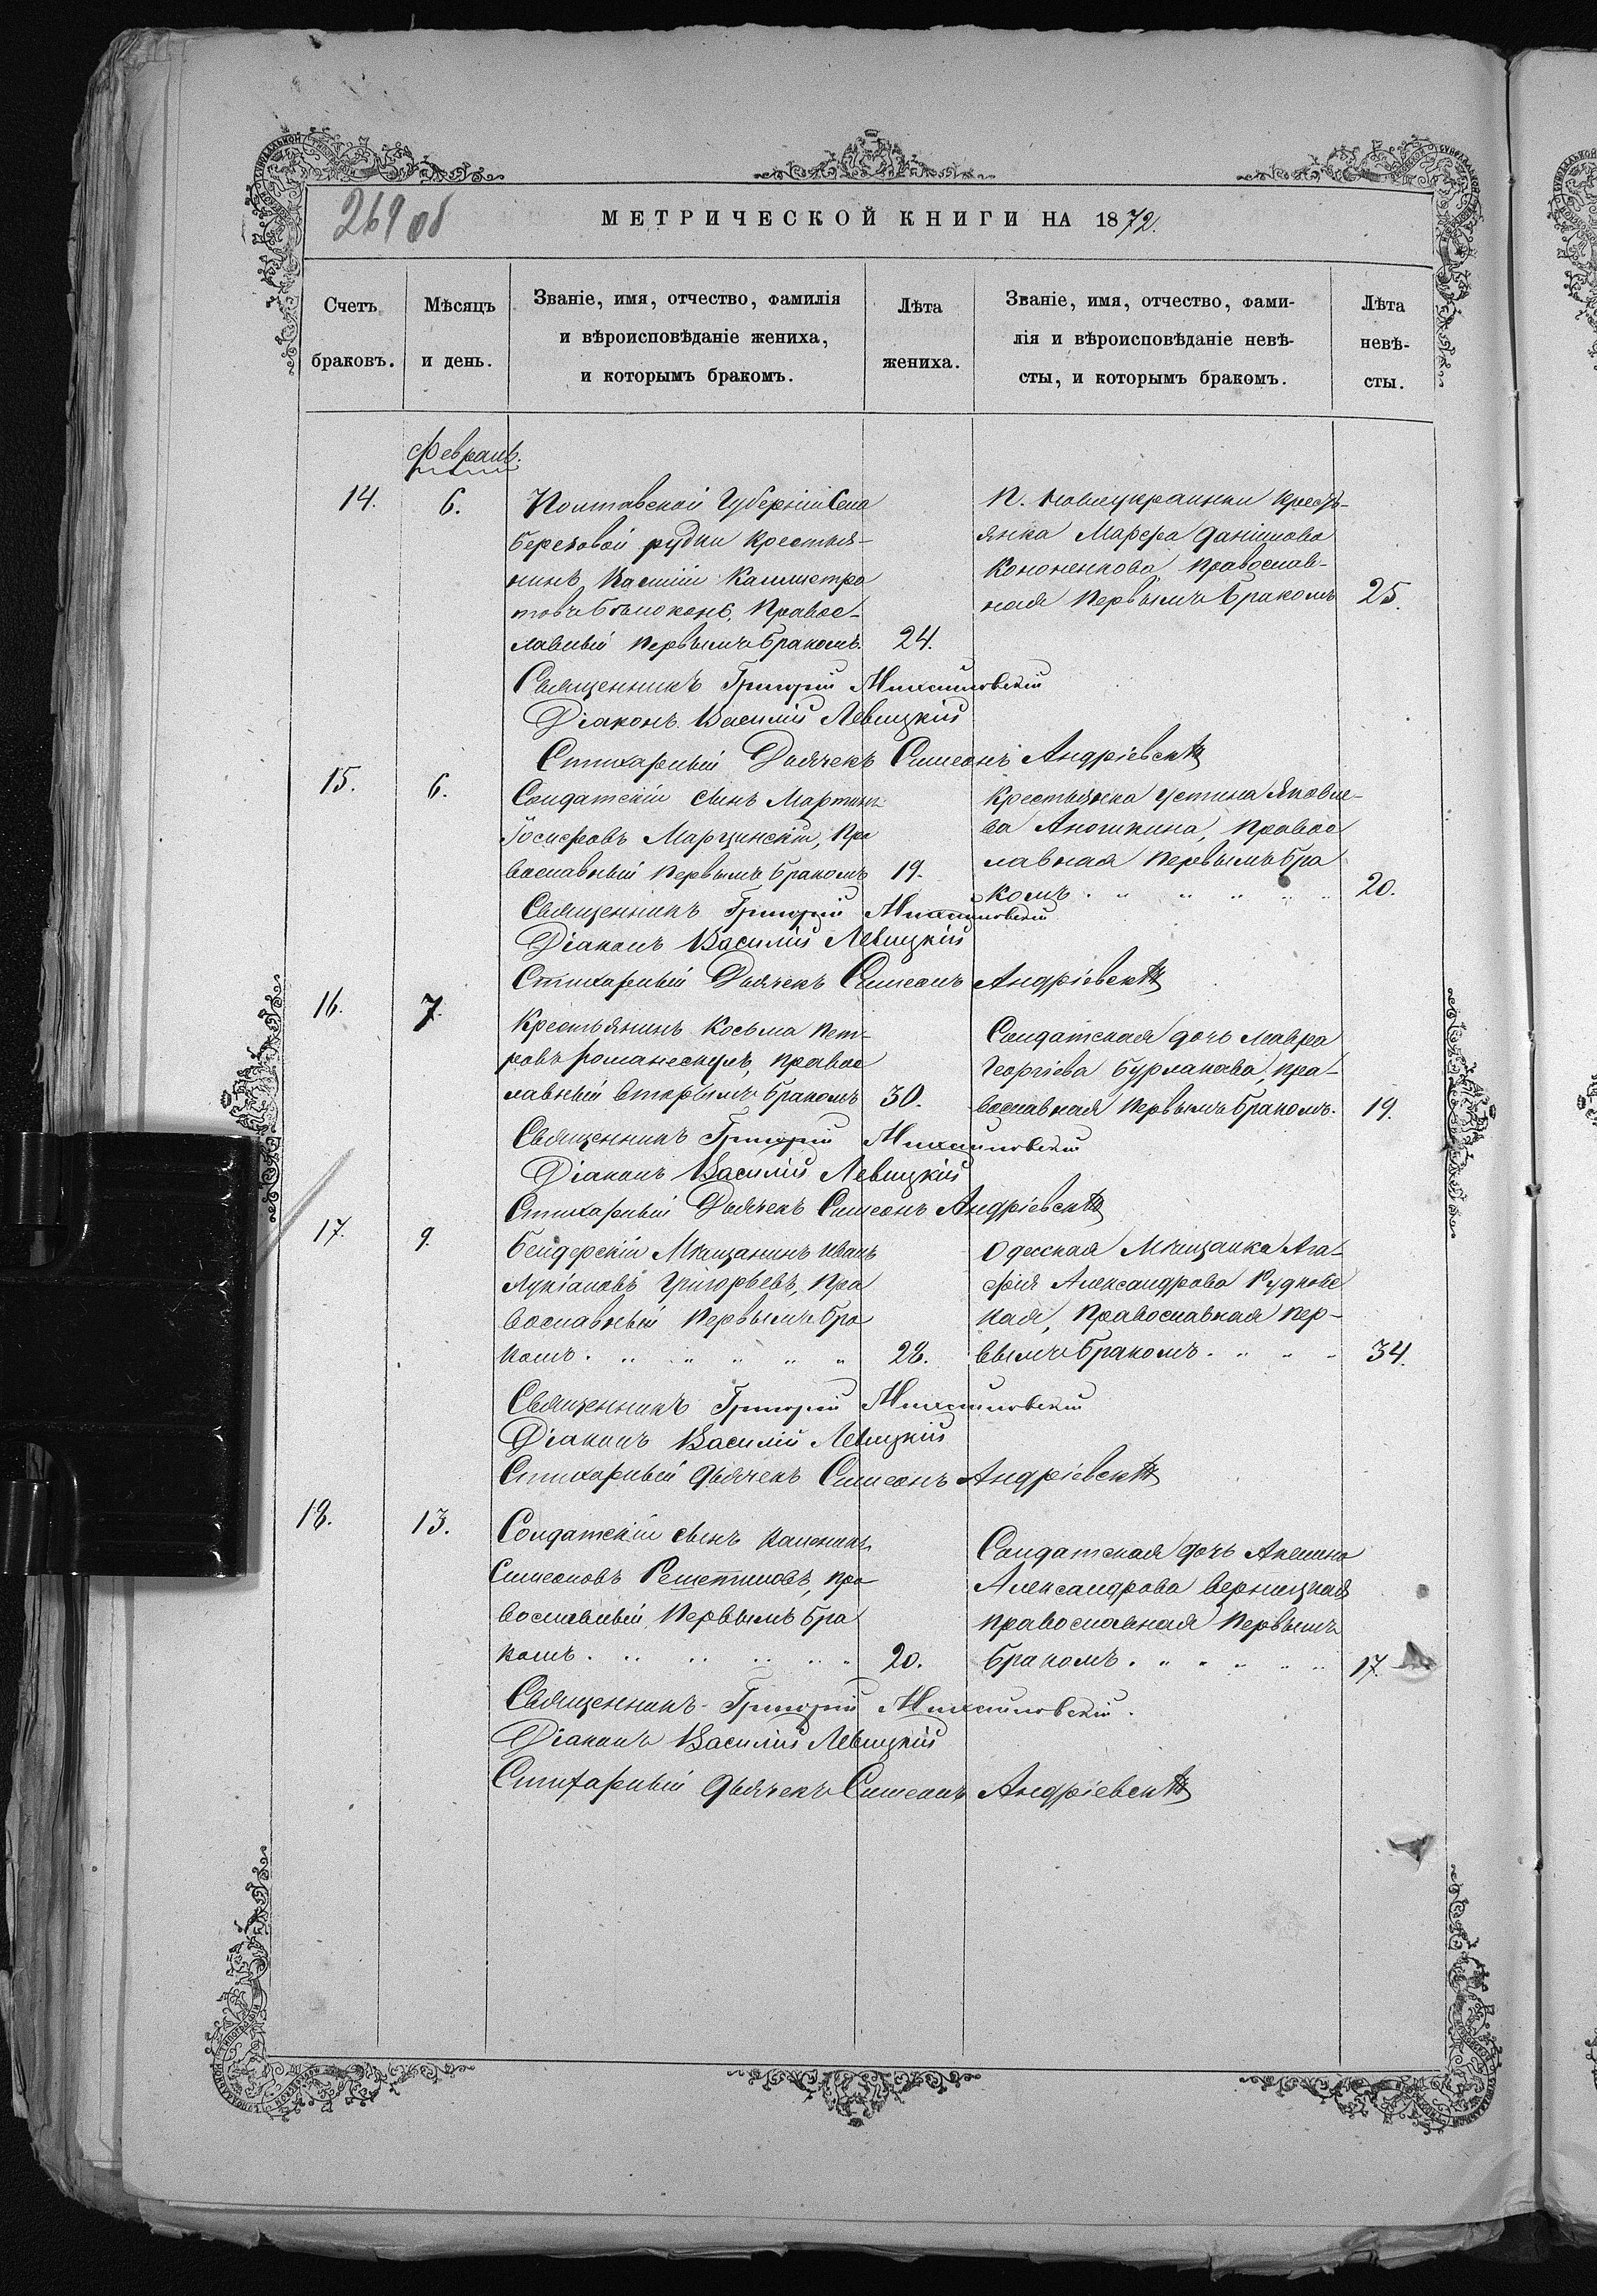 269 об
МЕТРИЧЕСКОЙ КНИГИ НА 1872.
Счетъ браковъ.
Мѣсяцъ и день.
Званіе, имя, отчество, фамилія
и вѣроисповѣданіе жениха,
и которымъ бракомъ.
Лѣта жениха.
Званіе, имя, отчество, фами-
лія и вѣроисповѣданіе невѣ-
сты, и которымъ бракомъ.
Лѣта невѣ-
сты.
Февраль.
14. 6.
Полтавской Губерніи Села
Березовой рудки крестья-
нинъ, Каллистра
товъ Бѣлоконь, Правос-
лавный первымъ бракомъ. 24.
П. Новоукраинки крестъ-
янка Марфа Даніилова
Кононенкова, Православ-
ная первымъ бракомъ 25.
Священникъ Григорій Михайловскій
Діаконъ Василій Левицкій
Стихарный Дьячекъ Симеонъ Андріевскій
15. 6.
Солдатскій сынъ Мартинъ
Іосифовъ Марцинскій, Пра
вославный первымъ бракомъ 19.
Крестьянка Устина Яковле-
ва Аношкина, Правос
лавная первымъ бра
комъ. " " " " " 20.
Священникъ Григорій Михайловскій
Діаконъ Василій Левицкій
Стихарный Дьячекъ Симеонъ Андріевскій
16. 7.
Крестьянинъ Косьма Пет-
ровъ Романескулъ, правос
лавный вторымъ бракомъ 30.
Солдатская дочь Мавра
Георгіева Бурлакова, пра-
вославная первымъ бракомъ. 19.
Священникъ Григорій Михайловскій
Діаконъ Василій Левицкій
Стихарный Дьячекъ Симеонъ Андріевскій
17. 9.
Бендерскій Мѣщанинъ Иванъ
Лукіановъ Григорьевъ, Пра
вославный первымъ бра
комъ. " " " " " 28.
Одесская Мѣщанка Ага-
фія Александрова Рудковс
кая, Православная пер-
вымъ бракомъ. " " " 34.
Священникъ Григорій Михайловскій
Діаконъ Василій Левицкій
Стихарный Дьячекъ Симеонъ Андріевскій
18. 13.
Солдатскій сынъ Каленикъ
Симеоновъ Решетиловъ, пра
вославный, первымъ бра
комъ. " " " " " 20.
Солдатская дочь Акилина
Александрова Верницкая
православная первымъ
бракомъ. " " " " " 17.
Священникъ Григорій Михайловскій.
Діаконъ Василій Левицкій
Стихарный Дьячекъ Симеонъ Андріевскій